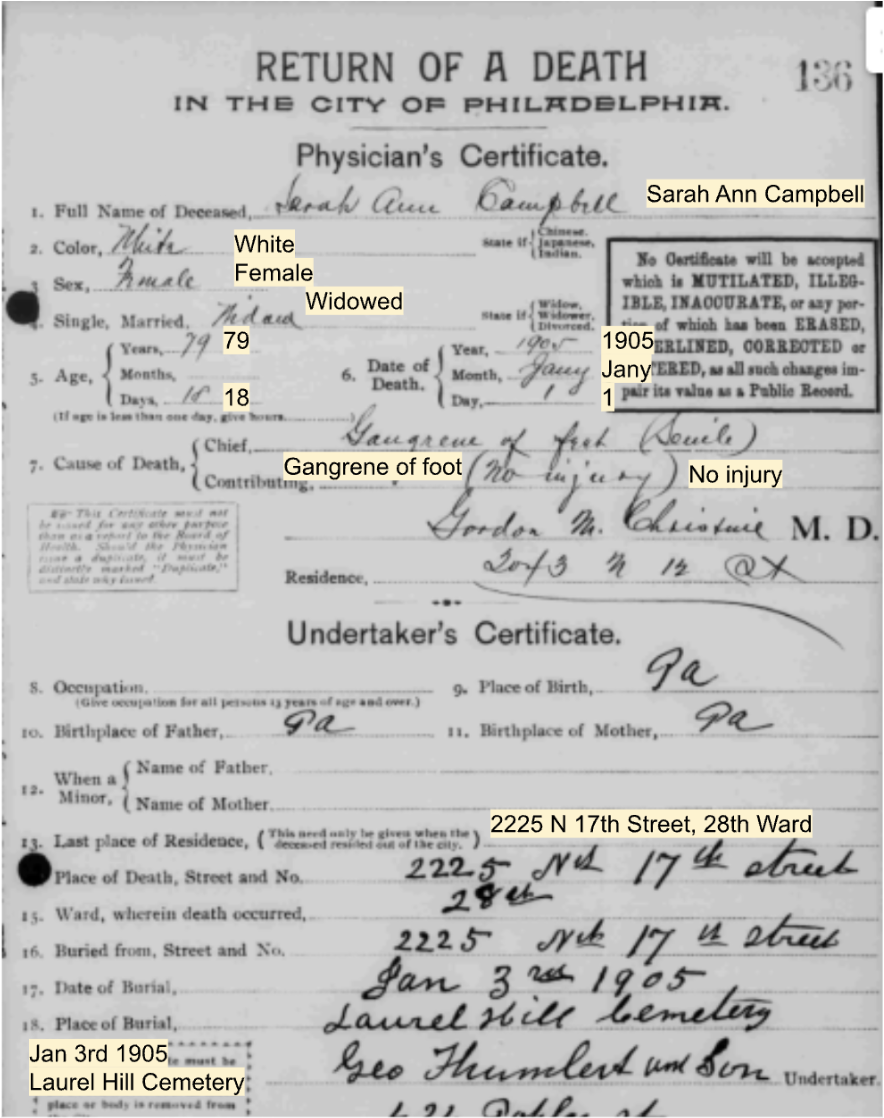 RETURN OF A DEATH
136
IN THE CITY OF PHILADELPHIA.
Physician's Certificate.
1. Full Name of Deceased, Sarah Ann Campbell Sarah Ann Campbell
2. Color, White White State if Chinese, Japanese, Indian.
3 Sex, Female Female
4. Single, Married, Widowed State if Widow, Widower, Divorced.
No Certificate will be accepted
which is MUTILATED, ILLEG-
IBLE, INACCURATE, or any por-
of which has been ERASED,
ERLINED, CORRECTED or
ERED, as all such changes im-
pair its value as a Public Record.
5. Age, Years, 79 79
Months,
Days, 18 18
(If age is less than one day, give hours.)
6. Date of Death. Year, 1905 1905
Month, Jany Jany
Day, 1 1
7. Cause of Death, Chief, Gangrene of foot (Senile)
Contributing, Gangrene of foot (No injury) No injury
This Certificate must not
be issued for any other purpose
than as a report to the Board of
Health. Should the Physician
issue a duplicate, it must be
distinctly marked "Duplicate,"
and state why issued.
Gordon M. Christine M. D.
Residence, 2043 N 12 St
Undertaker's Certificate.
8. Occupation.
(Give occupation for all persons 15 years of age and over.)
9. Place of Birth, Pa
10. Birthplace of Father, Pa
11. Birthplace of Mother, Pa
12. When a Minor, Name of Father,
Name of Mother
2225 N 17th Street, 28th Ward
13. Last place of Residence, (This need only be given when the deceased resided out of the city.)
Place of Death, Street and No. 2225 Nth 17th street
15. Ward, wherein death occurred, 28th
16. Buried from, Street and No. 2225 Nth 17th street
17. Date of Burial, Jan 3rd 1905
18. Place of Burial, Laurel Hill Cemetery
Jan 3rd 1905
Laurel Hill Cemetery
must be
place or body is removed from
Geo and Son Undertaker.